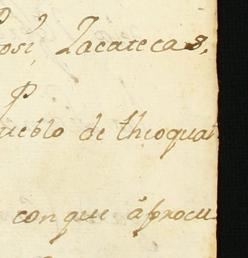 osi, Zacatecas,
ueblo de theoqual
con que âprocu